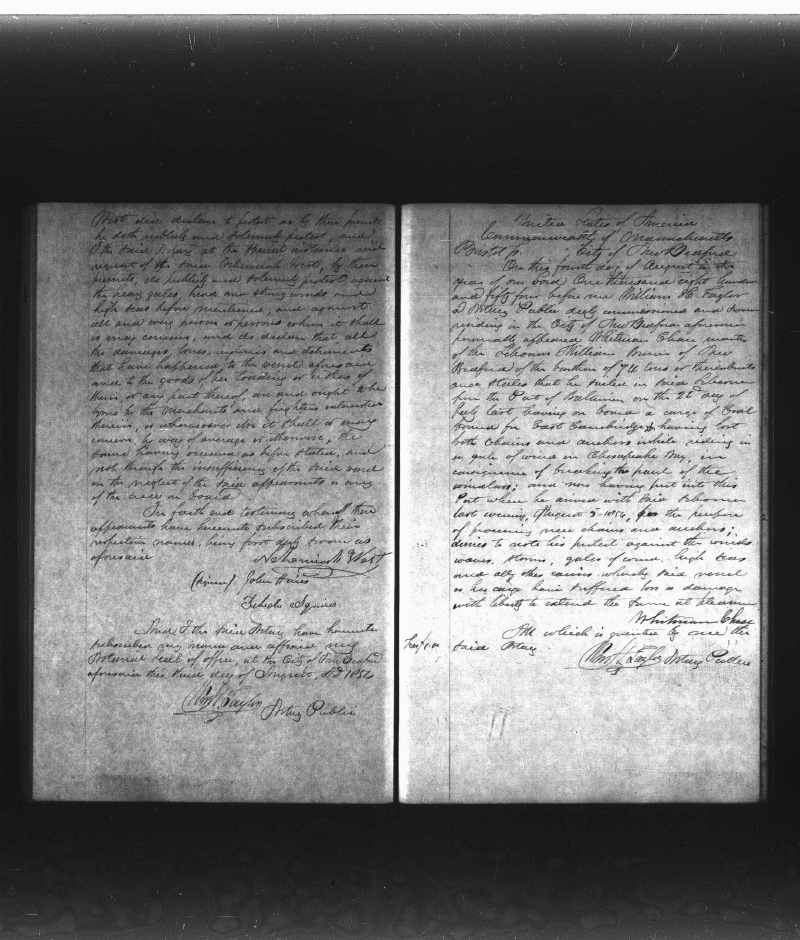 West did declare to protest as by these presents
he doth publicly and solemnly protest, and
I the said Notary at the special instance and
request of the said Nehemiah West, by these
presents, do publicly and solemnly protest against
the heavy gales, head and strong winds and
high seas before mentioned, and against
all and every person or persons whom it shall
or may concern, and do declare that all
the damages, losses, injuries and detriments
that have happened to the vessel aforesaid
and to the goods of her loading or either of
them, or any part thereof, are and ought to be
borne by the Merchants and freighters interested
therein, or whomsoever else it shall or may
concern, by way of average or otherwise, the
same having occurred as before stated, and
not through the insufficiency of the said vessel
or the neglect of the said appearants or any
of the crew on board
In faith and testimony whereof these
appearants have hereunto subscribed their
respective names, being first duly sworn as
aforesaid
Nehemiah West
(signed) John
Squires
And I the said Notary have hereunto
subscribed my name and affixed my
Notarial Seal of office, at the City of New Bedford
aforesaid this third day of August, AD 1854
Wm H. Taylor Notary Public
United States of America
Commonwealth of Massachusetts
Bristol ss. City of New Bedford
On this fourth day of August in the
year of our Lord One thousand eight hundred
and fifty four before me William H. Taylor
a Notary Public duly commissioned and sworn
residing in the City of New Bedford aforesaid
personally appeared Whitman Chase master
of the Schooner William Brown of New
Bedford of the burthen of 76 tons or thereabouts
and states that he sailed in said Schooner
from the Port of Baltimore on the 22d day of
July last having on board a cargo of Coal
bound for East Cambridge & having lost
both Chains and anchors while riding in
a gale of wind in Chesapeake Bay, in
consequence of breaking the pawl of the
windlass; and now having put into this
Port where he arrived with said Schooner
last evening, August 3 1854, for the purpose
of procuring new chains and anchors;
desires to note his protest against the winds
waves, storms, gales of wind, high seas
and all other causes whereby said vessel
or her cargo have suffered loss or damage
with liberty to extend the same at pleasure.
Whitman Chase
All which is granted by me the
said Notary.
Wm H. Taylor Notary Public